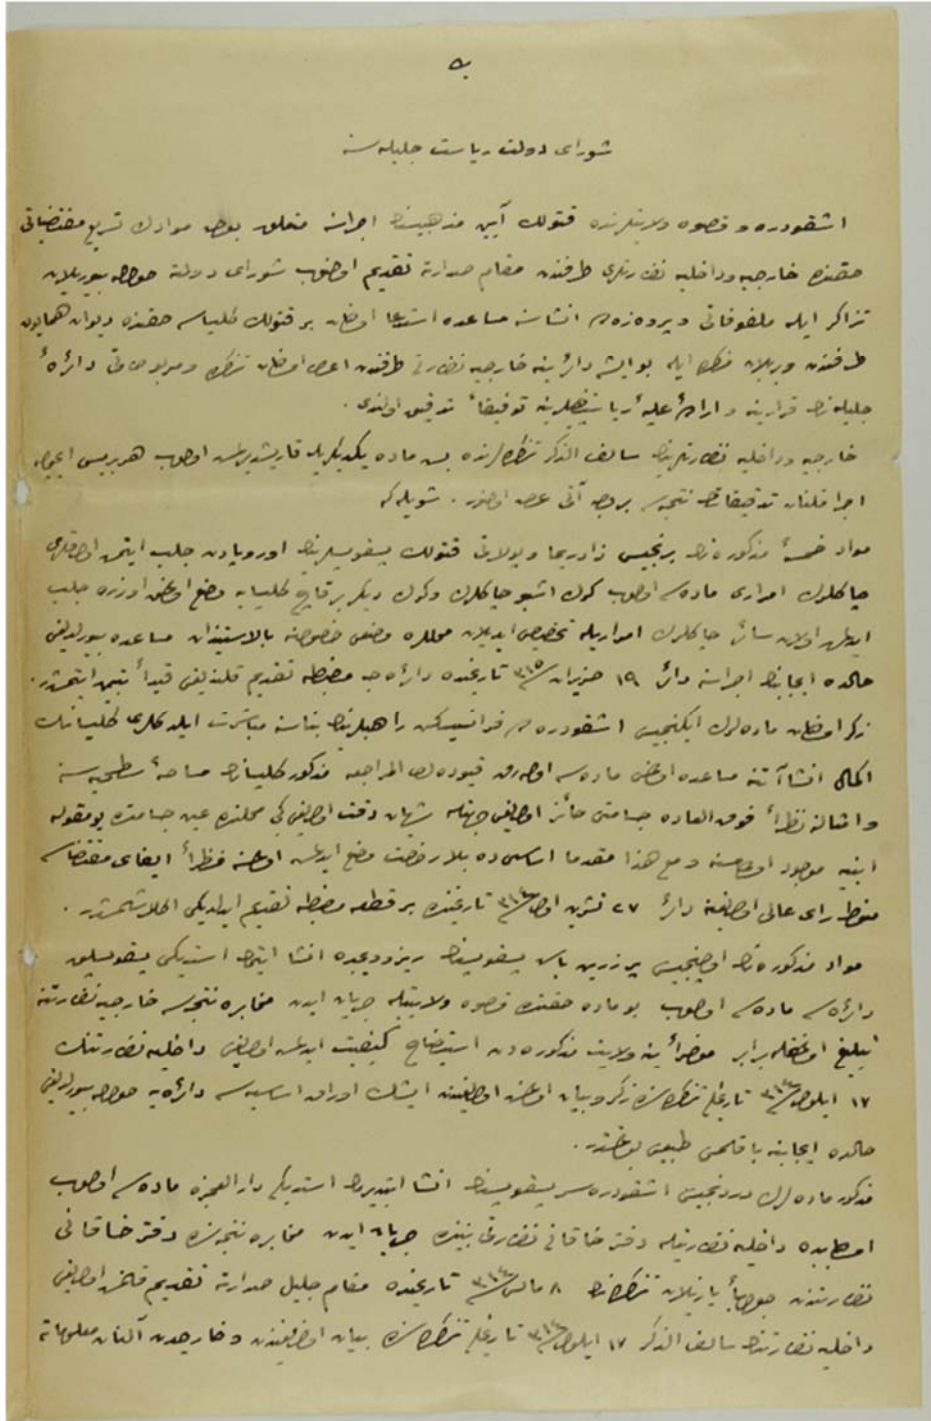 شوراى دولت رياست جليله سنه
اشقودره و قصوه ولايتلرنده قتولك آيين مذهبيسنك اجراسنه متعلق بعض موادك تسريع مقتضياتى
حقنده خارجيه و داخليه نظارتلرى طرفندن مقام صدارته تقديم اولنوب شوراى دولته حواله بيوريلان
تذاكر ايله ملفوفاتى و انشاسنه مساعده استدعا اولنان بر قتولك كليساسى حقنده ديوان همايون
طرفندن ويريلان مذكره ايله بو ايشه دائر ينه خارجيه نظارتى طرفندن اعطا اولنان تذكره و مربوطاتى دائرهٔ
جليله نك قرارينه و اراده عليهٔ رياستپناهيلرينه توفيقاً تدقيق اولندى.
خارجيه و داخليه نظارتلرينك سالف الذكر تذكره لرنده بش ماده يكديكريله قاريشديرلمش اولوب هر بريسى ايچون
اجرا قلنان تدقيقاتك نتيجه سى بر وجه آتى عرض اولنور. شويله كه
مواد خمسهٔ مذكوره نك برنجيسى زادريما و پولاتى قتولك پسقوپسلرينك اوروپادن جلب ايتمش اولدقلرى
چاكلرك امرارى ماده سى اولوب كرك اشبو چاكلرك وكرك ديكر بر قاچ كليسايه وضع اولنمق اوزره جلب
ايدلمش اولان سائر چاكلرك امراريله تخصيص ايديلان محللره وضعى خصوصنه بالاستيذان مساعده بيورلديغى
حالده ايجابنك اجراسنه دائر ١٩ حزيران سنه ٣١٥ تاريخنده دائره جه مضبطه تقديم قلنديغى قيداً تبين ايتمشدر.
ذكر اولنان ماده لرك ايكنجيسى اشقودره ده فرانسيسكن راهبلرينك بناسنه مباشرت ايلدكلرى كليسانك
اكمال انشاآتنه مساعده اولنمق ماده سى اولهرق قيوده لدى المراجعه مذكور كليسانك مساحهٔ سطحيه سنه
و امثالنه نظراً فوق العاده جسامتى حائز اولديغى جهتله شايان دقت اولديغى كبى محلنده عين جسامتده بو مقوله
ابنيه موجود اولمامسنه و مع هذا مقدما اساسى ده بلا رخصت وضع ايدلمش اولمسنه نظراً ايفاى مقتضاسى
منوط راى عالى اولديغنه دائر ٢٧ تشرين اول سنه ٣١٤ تاريخنده بر قطعه مضبطه تقديم ايديلديكى اكلاشلمشدر.
مواد مذكوره نك اوچنجيسى پرزرين باش پسقوپسنك ريزوويچده انشا ايتمك استديكى پسقوپسلق
دائره سى ماده سى اولوب بو ماده حقنده قصوه ولايتيله جريان ايدن مخابره نتيجه سى خارجيه نظارتنه
تبليغ اولنمغله برابر مؤخراً ينه ولايت مذكوره دن استيضاح كيفيت ايدلمش اولديغى داخليه نظارتنك
١٧ ايلول سنه ٣١٤ تاريخلى تذكره سنده ذكر و بيان اولنمش اولديغندن ايشك اوراق اساسيه سى دائره يه حواله بيورلديغى
حالده ايجابنه باقلمسى طبيعى بولنمشدر.
مذكور ماده لرك دردنجيسى اشقودره سر پسقوپسنك انشا ايتديرمك استديكى دار العجزه ماده سى اولوب
اولبابده داخليه نظارتيله دفتر خاقانى نظارتى بيننده جريان ايدن مخابره نتيجه سنده دفتر خاقانى
نظارتندن جواباً يازيلان تذكره نك ٨ مارت سنه ٣١٤ تاريخنده مقام جليل صدارته تقديم قلنمش اولديغى
داخليه نظارتنك سالف الذكر ١٧ ايلول سنه ٣١٤ تاريخلى تذكره سنده بيان اولنديغندن و خارجدن آلنان معلوماته